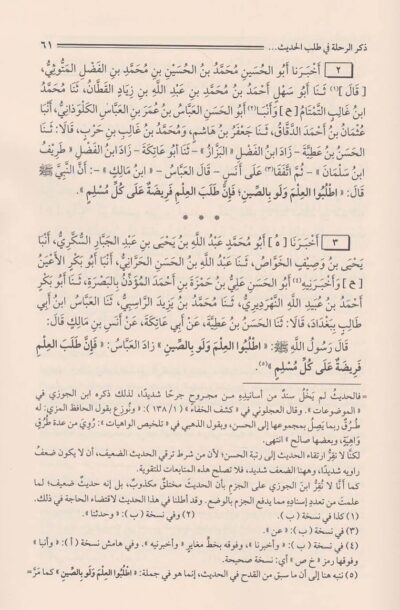 ذكر الرحلة في طلب الحديث... ٦١
٢ أَخْبَرَنَا أَبُو الحُسَينِ مُحَمَّدُ بنُ الحُسَيْنِ بنِ مُحَمَّدِ بنِ الفَضْلِ المَتُّوثِيُّ،
[قَالَ](١) ثَنَا أَبُو سَهْلٍ أَحْمَدُ بنُ مُحَمَّدِ بنِ عَبدِ اللَّهِ بنِ زِيَادٍ القَطَّانُ، ثَنَا مُحَمَّدُ
ابنُ غَالِبٍ التَّمْتَامُ [ح] وَأَنْبَا(٢) أَبُو الحَسَنِ العَبَّاسُ بنُ عُمَرَ بنِ العَبَّاسِ الكَلْوَذَانِيُّ، أَنْبَا
عُثْمَانُ بنُ أَحْمَدَ الدَّقَّاقُ، ثَنَا جَعْفَرُ بنُ هَاشِمٍ، وَمُحَمَّدُ بنُ غَالِبِ بنِ حَرْبٍ، قَالَا: ثَنَا
الحَسَنُ بنُ عَطِيَّةَ – زَادَ ابنُ الفَضْلِ « البَزَّازُ » – ثَنَا أَبُو عَاتِكَةَ – زَادَ ابنُ الفَضْلِ « طَرِيفُ
ابنُ سَلْمَانَ » – ثُمَّ اتَّفَقَا(٣) عَلَى أَنَسٍ – قَالَ العَبَّاسُ – « ابنُ مَالِكٍ » –: أَنَّ النَّبِيَّ ﷺ
قَالَ: « اطْلُبُوا العِلْمَ وَلَو بِالصِّينِ؛ فَإِنَّ طَلَبَ العِلْمِ فَرِيضَةٌ عَلَى كُلِّ مُسْلِمٍ ».
* * *
٣ أَخْبَرَنَا [هُ] أَبُو مُحَمَّدٍ عَبدُ اللَّهِ بنُ يَحْيَى بنِ عَبدِ الجَبَّارِ السُّكَّرِيُّ، أَنْبَا
يَحْيَى بنُ وَصِيفٍ الخَوَّاصُ، ثَنَا عَبدُ اللَّهِ بنُ الحَسَنِ الحَرَّانِيُّ، أَنْبَا أَبُو بَكْرٍ الأَعْيَنُ
[ح] وَأَخْبَرَنِيهِ(٤) أَبُو الحَسَنِ عَلِيُّ بنُ حَمْزَةَ بنِ أَحْمَدَ المُؤَذِّنُ بِالبَصْرَةِ، ثَنَا أَبُو بَكْرٍ
أَحْمَدُ بنُ عُبَيدِ اللَّهِ النَّهْرَدِيرِيُّ، ثَنَا مُحَمَّدُ بنُ يَزِيدَ الرَّاسِبِيُّ، ثَنَا العَبَّاسُ ابنُ أَبِي
طَالِبٍ بِبَغْدَادَ، قَالَا: ثَنَا الحَسَنُ بنُ عَطِيَّةَ، عَنْ أَبِي عَاتِكَةَ، عَنْ أَنَسِ بنِ مَالِكٍ قَالَ:
قَالَ رَسُولُ اللَّهِ ﷺ: « اطْلُبُوا العِلْمَ وَلَو بِالصِّينِ » زَادَ العَبَّاسُ: « فَإِنَّ طَلَبَ العِلْمِ
فَرِيضَةٌ عَلَى كُلِّ مُسْلِمٍ »(٥).
=فالحديثُ لم يَخْلُ سندٌ من أسانيدِهِ مِن مجروحٍ جرحًا شديدًا، لذلك ذكره ابن الجوزي في
« الموضوعات ». وقال العجلوني في « كشف الخفاء » (١/ ١٣٨): « ونُوزِع بقول الحافظ المزي: له
طُرُقٌ ربما يَصِلُ بمجموعها إلى الحسن، ويقول الذهبي في « تلخيص الواهيات »: رُوِيَ من عدة طُرُقٍ
واهيةٍ، وبعضها صالح » انتهى.
لكنَّا لا نُقِرُّ ارتقاء الحديث إلى رتبة الحسن؛ لأن من شرط ترقي الحديث الضعيف، أن لا يكون ضعفُ
راويه شديدًا، وههنا الضعف شديد، فلا تصلح هذه المتابعات للتقوية.
كما أنَّا لا نُقِرُّ ابنَ الجوزي على الجزم بأن الحديثَ مختلقٌ مكذوبٌ، بل إنه حديثٌ ضعيفٌ؛ لما
علمتَ من تعدد إسنادِهِ مما يدفع الجزم بالوضع. وقد أطلنا في هذا الحديث لاقتضاء الحاجة في ذلك.
(١) كذا في نسخة (ب). (٢) وفي نسخة (ب): « وحدثنا ».
(٣) في نسخة (ب): « عن ».
(٤) في نسخة (ب): « وأخبرنا »، وفوقه بخطٍّ مغايرٍ « وأخبرنيه ». وفي هامش نسخة (أ): « وأنبا »
وفوقها رمز « خ ص » أي: نسخة صحيحة.
(٥) ننبه هنا إلى أن ما سبق من القدح في الحديث، إنما هو في جملة: « اطْلُبُوا العِلْمَ وَلَو بِالصِّينِ » كما مَرَّ=